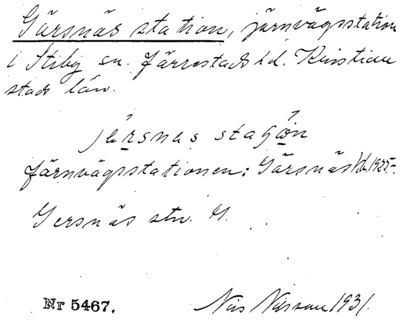 Gärsnäs station, järnvägsstation
i Stiby sn. Järrestads hd. Kristian
stads län.
järsnas staʃón
Järnvägsstationen: Gärsnäs 1925.
Gersnäs stn. G.
Nr 5467. Nils Nilsson 1931.